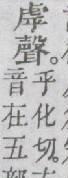 虖聲。
乎化切。古
音在五部